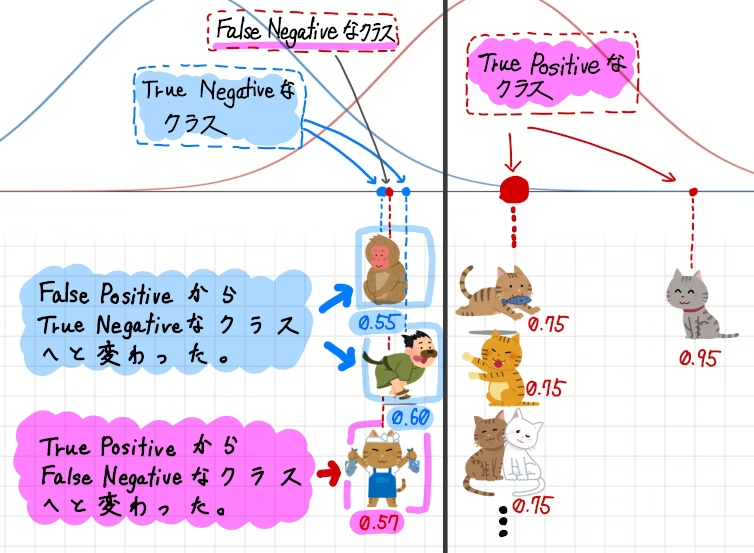 False Negativeなクラス
True Negativeな
クラス
True Positiveな
クラス
False Positive から
True Negativeなクラス
へと変わった。
0.55
0.60
True Positive から
False Negativeなクラス
へと変わった。
0.57
0.75
0.75
0.75
0.95